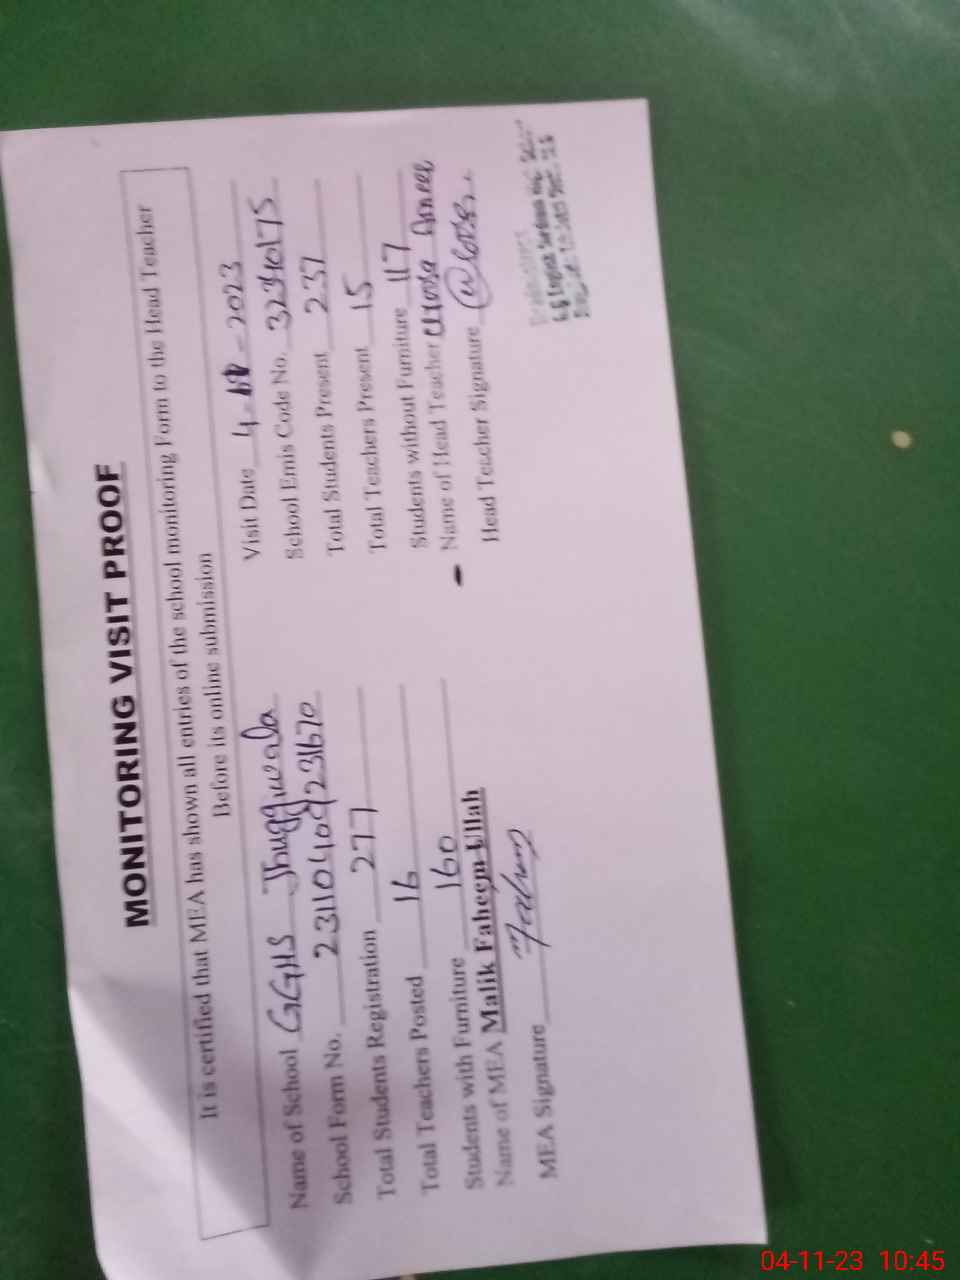 MONITORING VISIT PROOF
It is certified that MEA has shown all entries of the school monitoring Form to the Head Teacher
Before its online submission
Name of School GGHS Jhuggiwala
Visit Date 4-11-2023
School Form No. 23110409231670
School Emis Code No. 32310175
Total Students Registration 277
Total Students Present 237
Total Teachers Posted 16
Total Teachers Present 15
Students with Furniture 160
Students without Furniture 117
Name of MEA Malik Faheem Ullah
Name of Head Teacher
MEA Signature Faheem
Head Teacher Signature
04-11-23 10:45